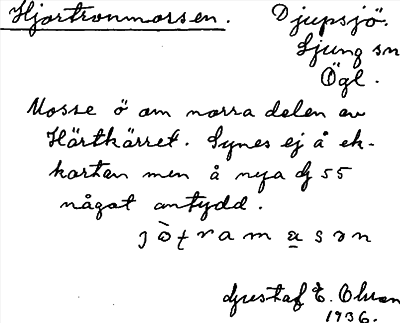 Hjortronmossen. Djupsjö.
Ljung sn
Ögl.
Mosse ö om norra delen av
Hörtkärret. Synes ej å ek-
kartan men å nya G 55
något antydd.
Gustaf E. Olsson
1936.